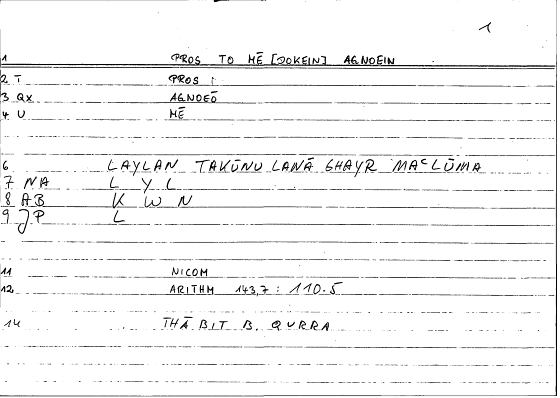 1
1 PROS TO MĒ [DOKEIN] AGNOEIN
2 T PROS :
3 QX AGNOEŌ
4 U MĒ
6 LAYLAN TAKŪNU LANĀ GHAYR MAᶜLŪMA
7 NA L Y L
8 AB K W N
9 JP L
11 NICOM
12 ARITHM 143,7 : 110.5
14 THĀBIT B. QURRA